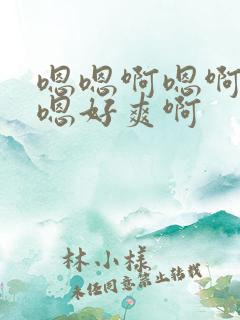 嗯嗯啊嗯啊
嗯好爽啊
林小様
未经同意禁止转载